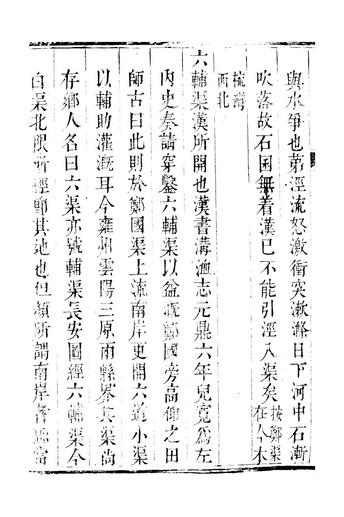 與水爭也第涇流怒激衝突漱滌日下河中石漸
吹落故石囷無着漢已不能引涇入渠矣按鄭渠在今木
梳灣西北
六輔渠漢所開也漢書溝洫志元鼎六年兒寬為左
內史奏請穿鑿六輔渠以益溉鄭國旁高仰之田
師古曰此則於鄭國渠上流南岸更開六道小渠
以輔助灌溉耳今雍州雲陽三原兩縣界此渠尚
存鄉人名曰六渠亦號輔渠長安圖經六輔渠今
白渠北限所經即其地也但顏所謂南岸者